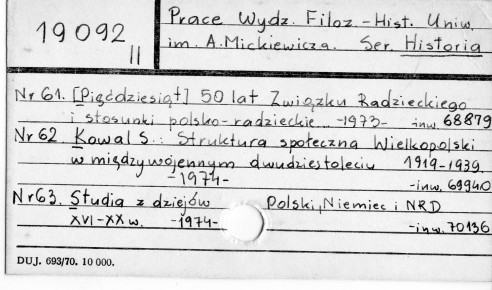 19 092
II
Prace Wydz. Filoz.-Hist. Uniw.
im. A. Mickiewicza. Ser. Historia
Nr 61. [Pięćdziesiąt] 50 lat Związku Radzieckiego
i stosunki polsko-radzieckie -1973- inw. 68879
Nr 62 Kowal S.: Struktura społeczna Wielkopolski
w międzywojennym dwudziestoleciu 1919-1939.
-1974- -inw. 69940
Nr 63. Studia z dziejów Polski, Niemiec i NRD
XVI-XX w. -1974- -inw. 70136
DUJ. 693/70. 10 000.